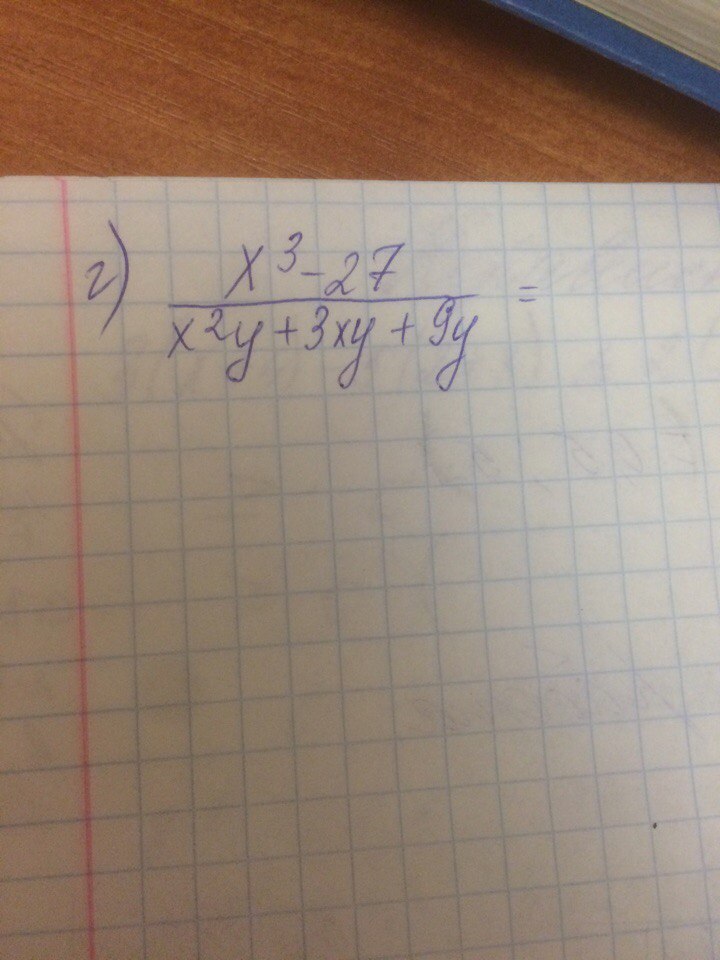 г) x³-27 / x²y+3xy+9y =